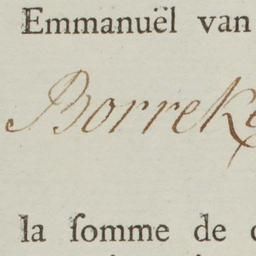 Emmanuël van
Borreke
la ſomme de